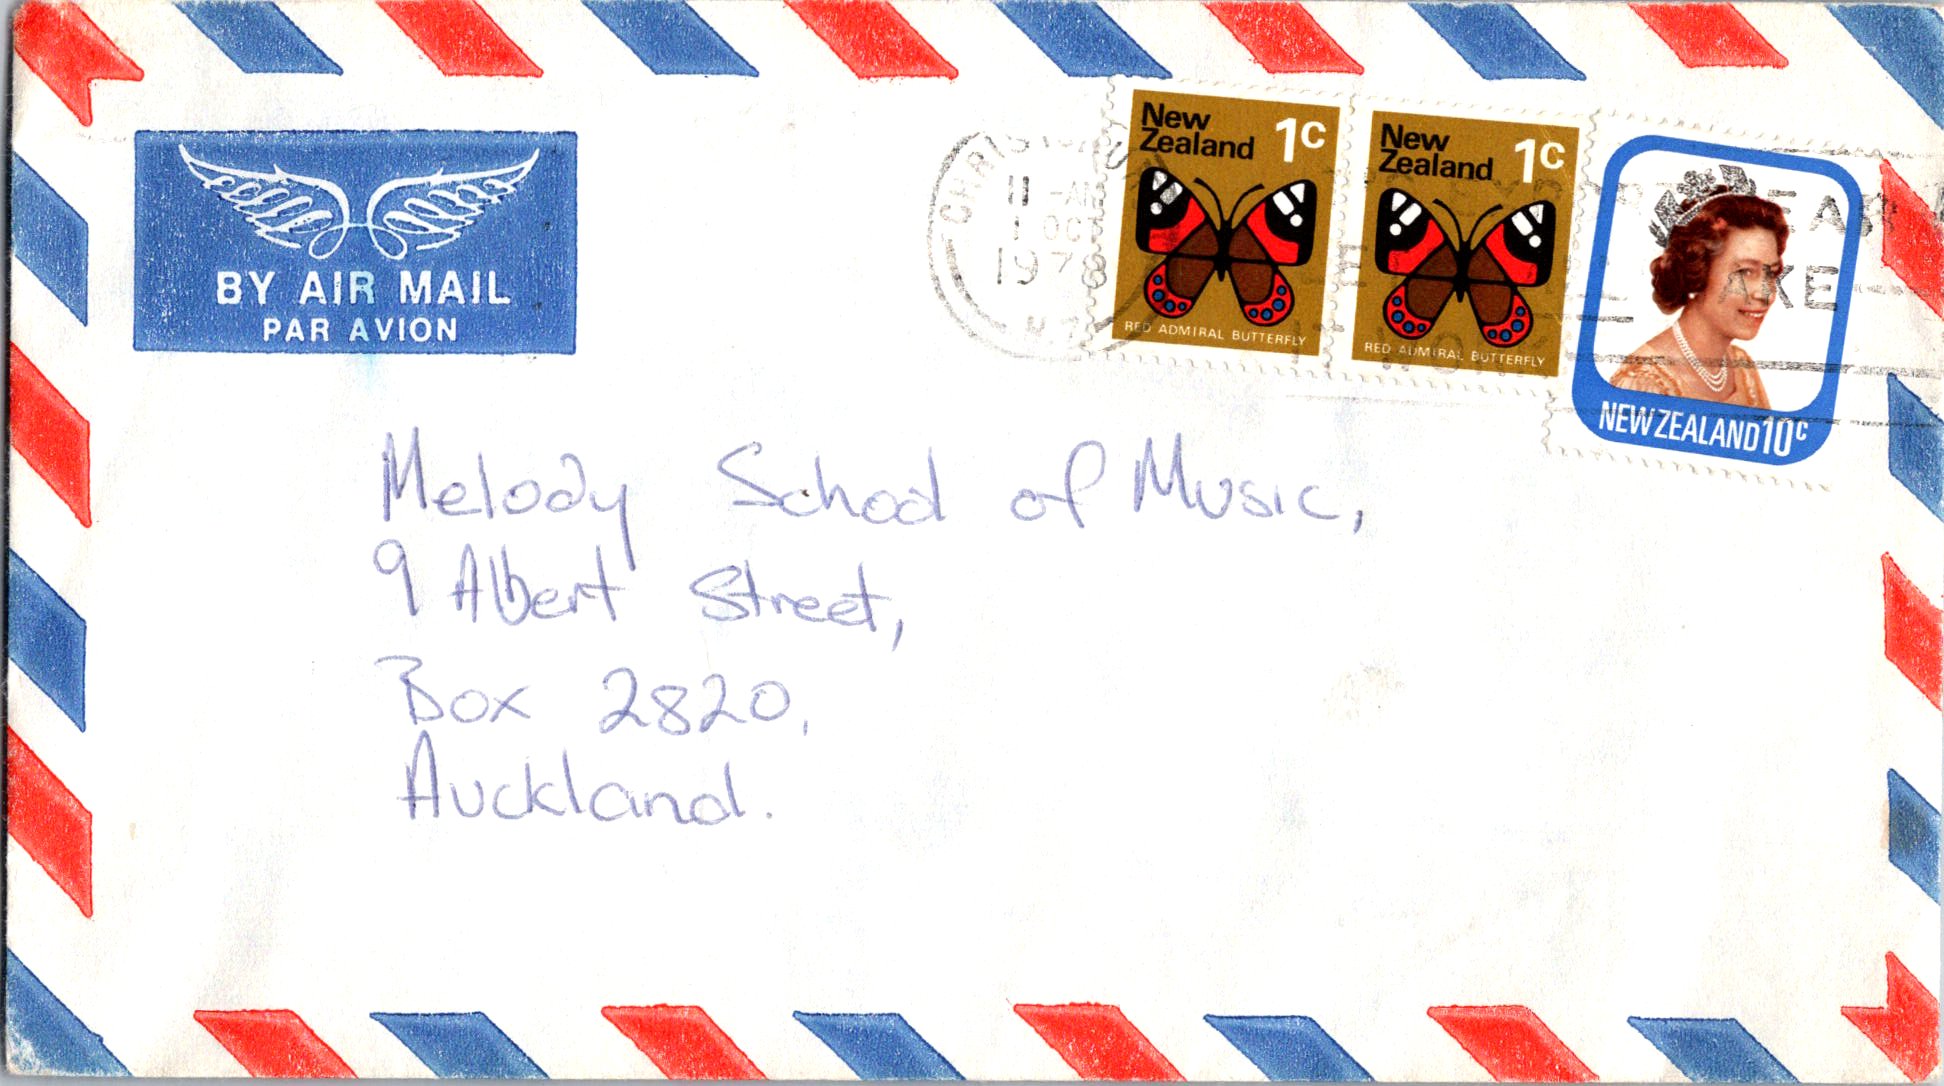 BY AIR MAIL
PAR AVION
11 -AM
1 OC
1978
New
Zealand 1c
RED ADMIRAL BUTTERFLY
New
Zealand 1c
RED ADMIRAL BUTTERFLY
NEW ZEALAND 10c
EXPORT YEAR
IT WORK
Melody School of Music,
9 Albert Street,
Box 2820,
Auckland.